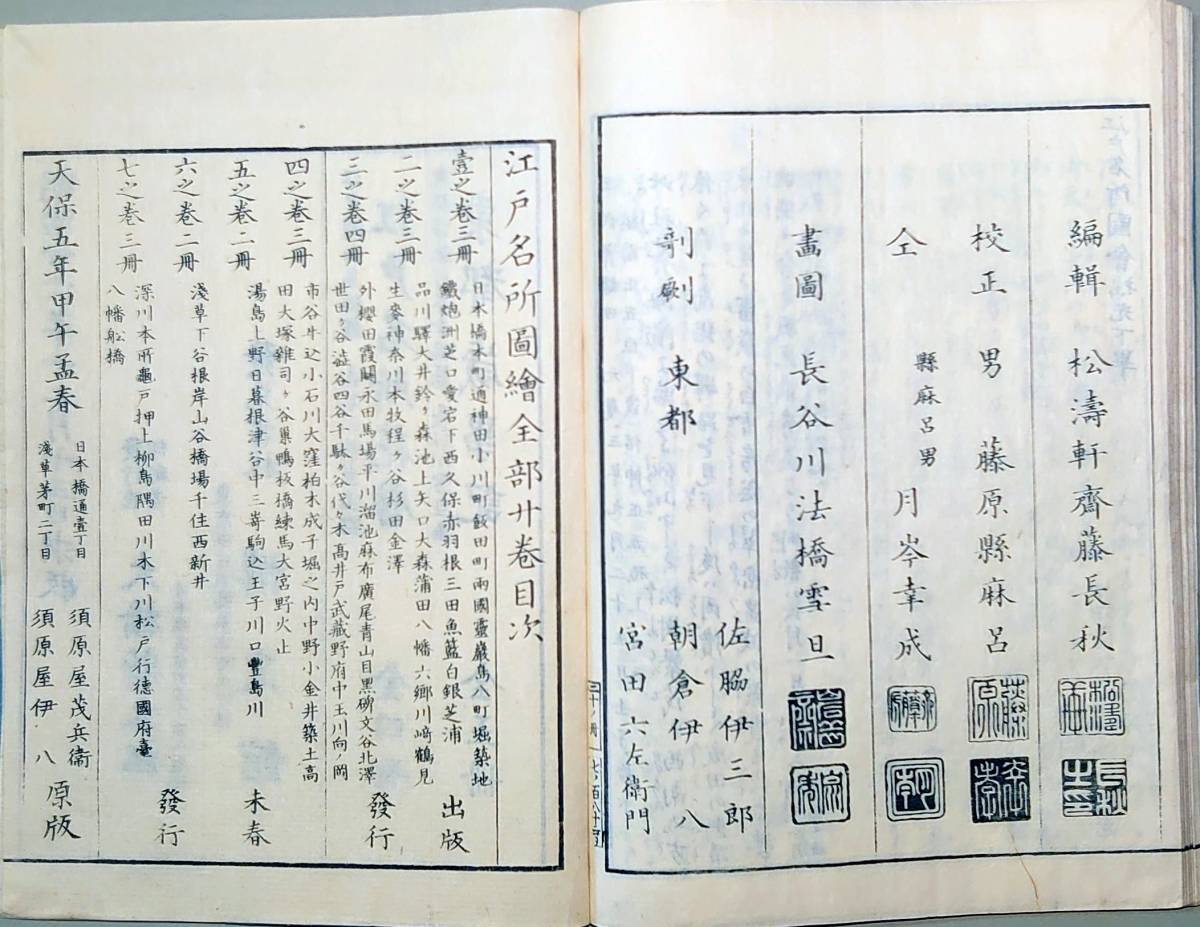 編輯 松濤軒齊藤長秋
校正 男 藤原縣麻呂
仝 縣麻呂男 月岑幸成
畫圖 長谷川法橋雪旦
剞劂 東都 佐脇伊三郎
朝倉伊八
宮田六左衛門
江戸名所圖繪全部廿巻目次
壹之巻三冊 日本橋本町通神田小川町飯田町兩國靈巌島八町堀築地
鐵炮洲芝口愛宕下西久保赤羽根三田魚籃白銀芝浦 出版
二之巻三冊 品川驛大井鈴ヶ森池上矢口大森蒲田八幡六郷川﨑鶴見
生麥神奈川本牧程ヶ谷杉田金澤
三之巻四冊 外櫻田霞關永田馬場平川溜池麻布廣尾青山目黒碑文谷北澤
世田ヶ谷澁谷四谷千駄ヶ谷代々木髙井戸武藏野府中玉川向ノ岡 發行
四之巻三冊 市谷牛込小石川大窪柏木成子堀之内中野小金井築土高
田大塚雜司ヶ谷巣鴨板橋練馬大宮野火止
五之巻二冊 湯島上野日暮根津谷中三嵜駒込王子川口豐島川 未春
六之巻二冊 淺草下谷根岸山谷橋場千住西新井
七之巻三冊 深川本所龜戸押上柳島隅田川木下川松戸行德國府臺
八幡舩橋 發行
天保五年甲午孟春 日本橋通壹丁目 須原屋茂兵衛
淺草茅町二丁目 須原屋伊八 原版